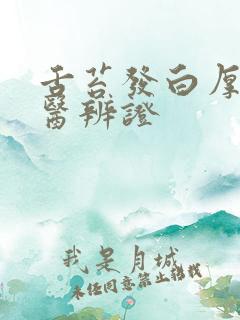 舌苔發白厚
醫辨證
我是月城
未经同意禁止转载